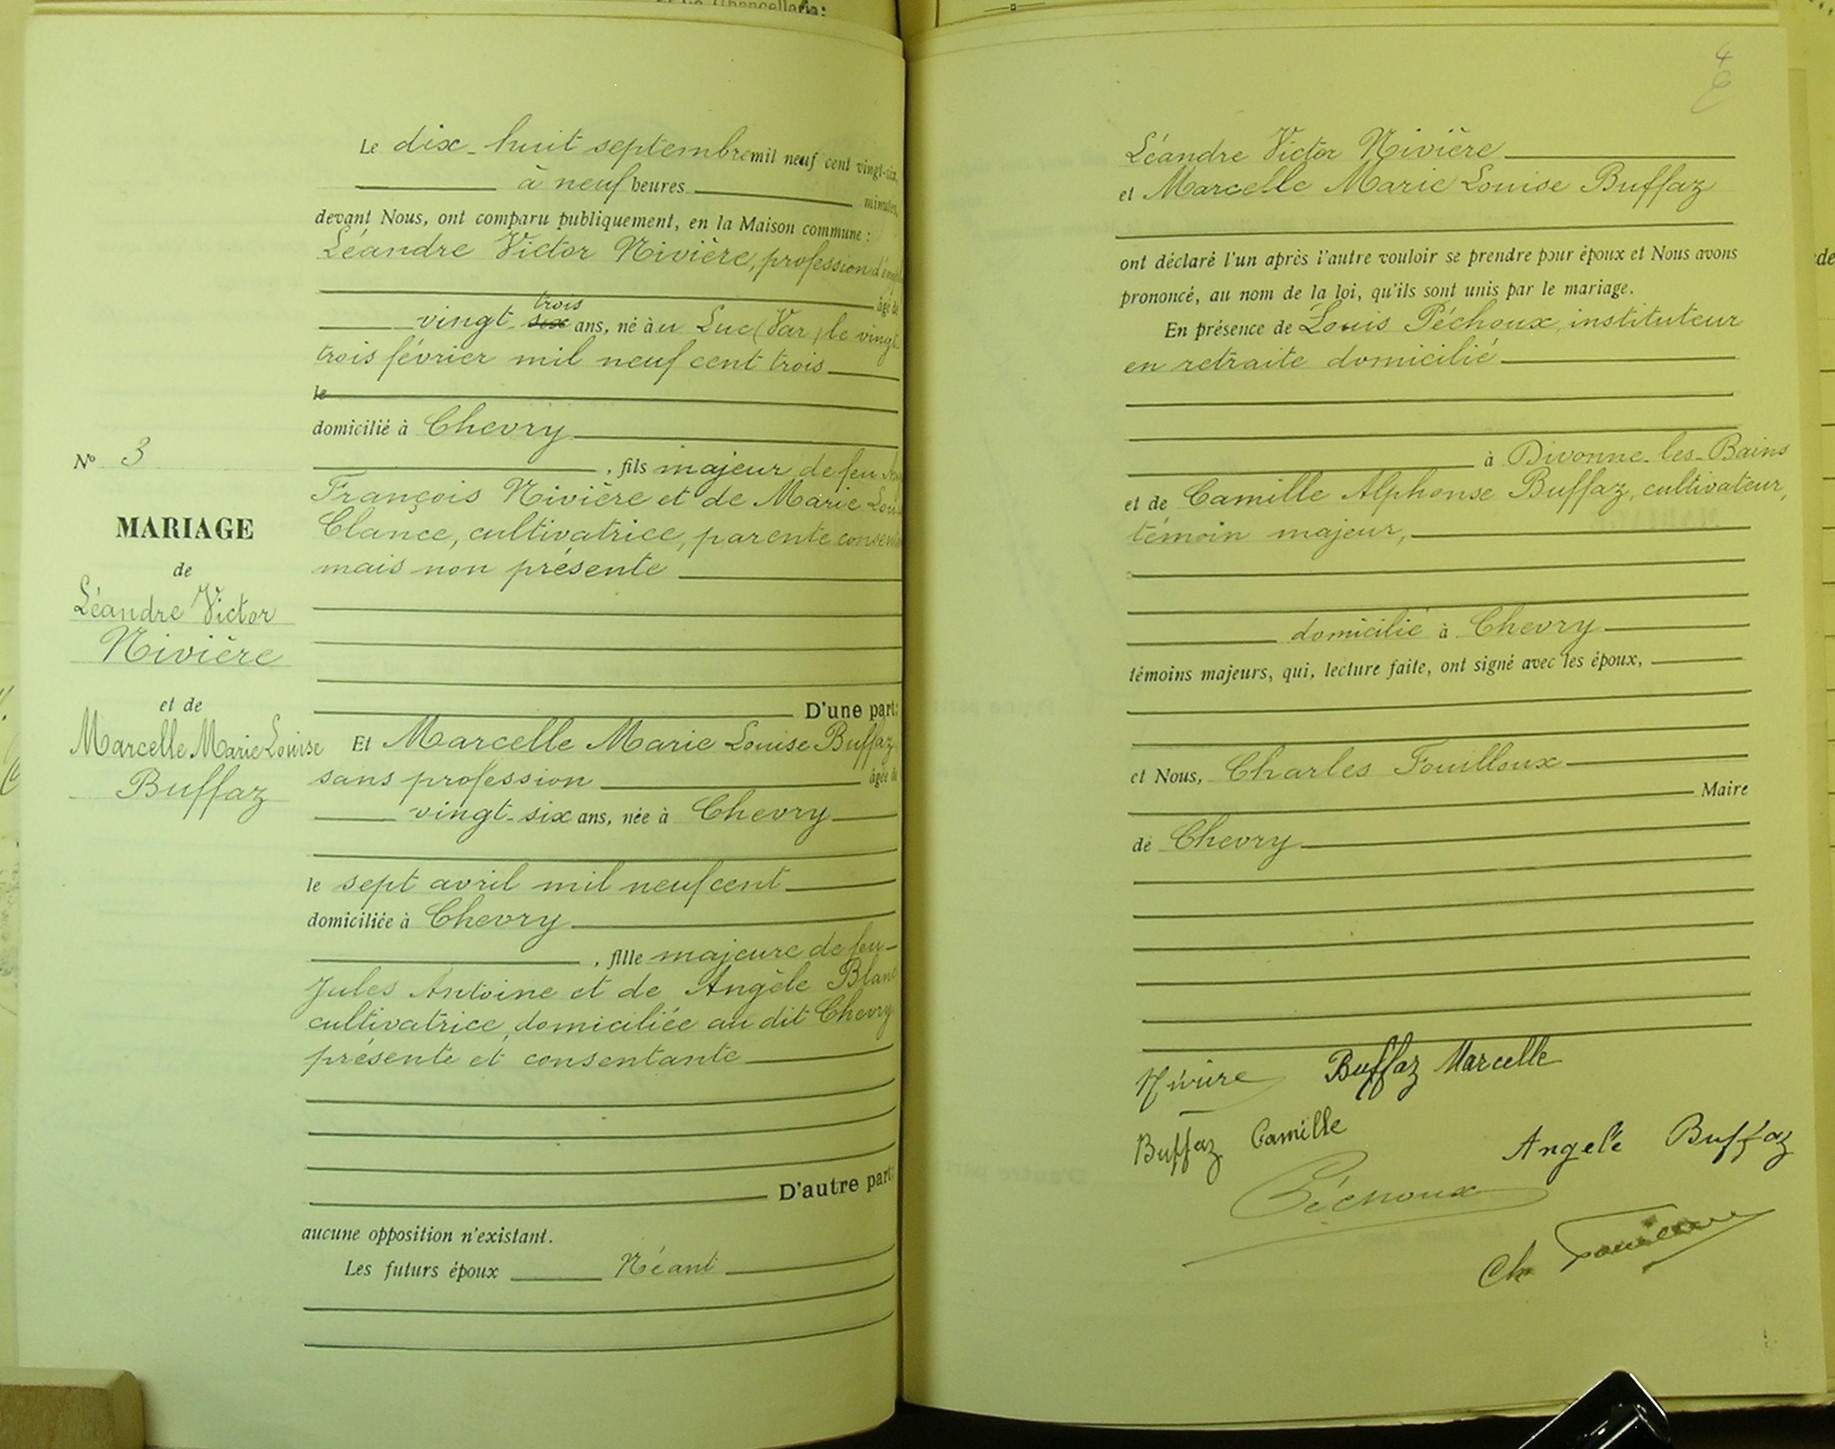 Le dix-huit septembre mil neuf cent vingt-six,
à neuf heures minutes,
devant Nous, ont comparu publiquement, en la Maison commune :
Léandre Victor Nivière, profession
âgé de
trois
vingt-six ans, né à au Luc (Var) le vingt-
trois février mil neuf cent trois
le
domicilié à Chevry
, fils majeur de feu
François Nivière et de Marie
Clance, cultivatrice, parente
mais non présente
D'une part:
Et Marcelle Marie Louise Buffaz
sans profession âgée de
vingt-six ans, née à Chevry
le sept avril mil neuf cent
domiciliée à Chevry
, fille majeure de feu
Jules Antoine et de Angèle Blanc
cultivatrice, domiciliée au dit Chevry
présente et consentante
D'autre part:
aucune opposition n'existant.
Les futurs époux Néant
No 3
MARIAGE
de
Léandre Victor
Nivière
et de
Marcelle Marie Louise
Buffaz
Léandre Victor Nivière
et Marcelle Marie Louise Buffaz
ont déclaré l'un après l'autre vouloir se prendre pour époux et Nous avons
prononcé, au nom de la loi, qu'ils sont unis par le mariage.
En présence de Louis Péchoux, instituteur
en retraite domicilié
à Divonne-les-Bains
et de Camille Alphonse Buffaz, cultivateur,
témoin majeur,
domicilié à Chevry
témoins majeurs, qui, lecture faite, ont signé avec les époux,
et Nous, Charles Fouilloux
Maire
de Chevry
Nivière Buffaz Marcelle
Buffaz Camille
Angèle Buffaz
Péchoux
Ch Fouilloux